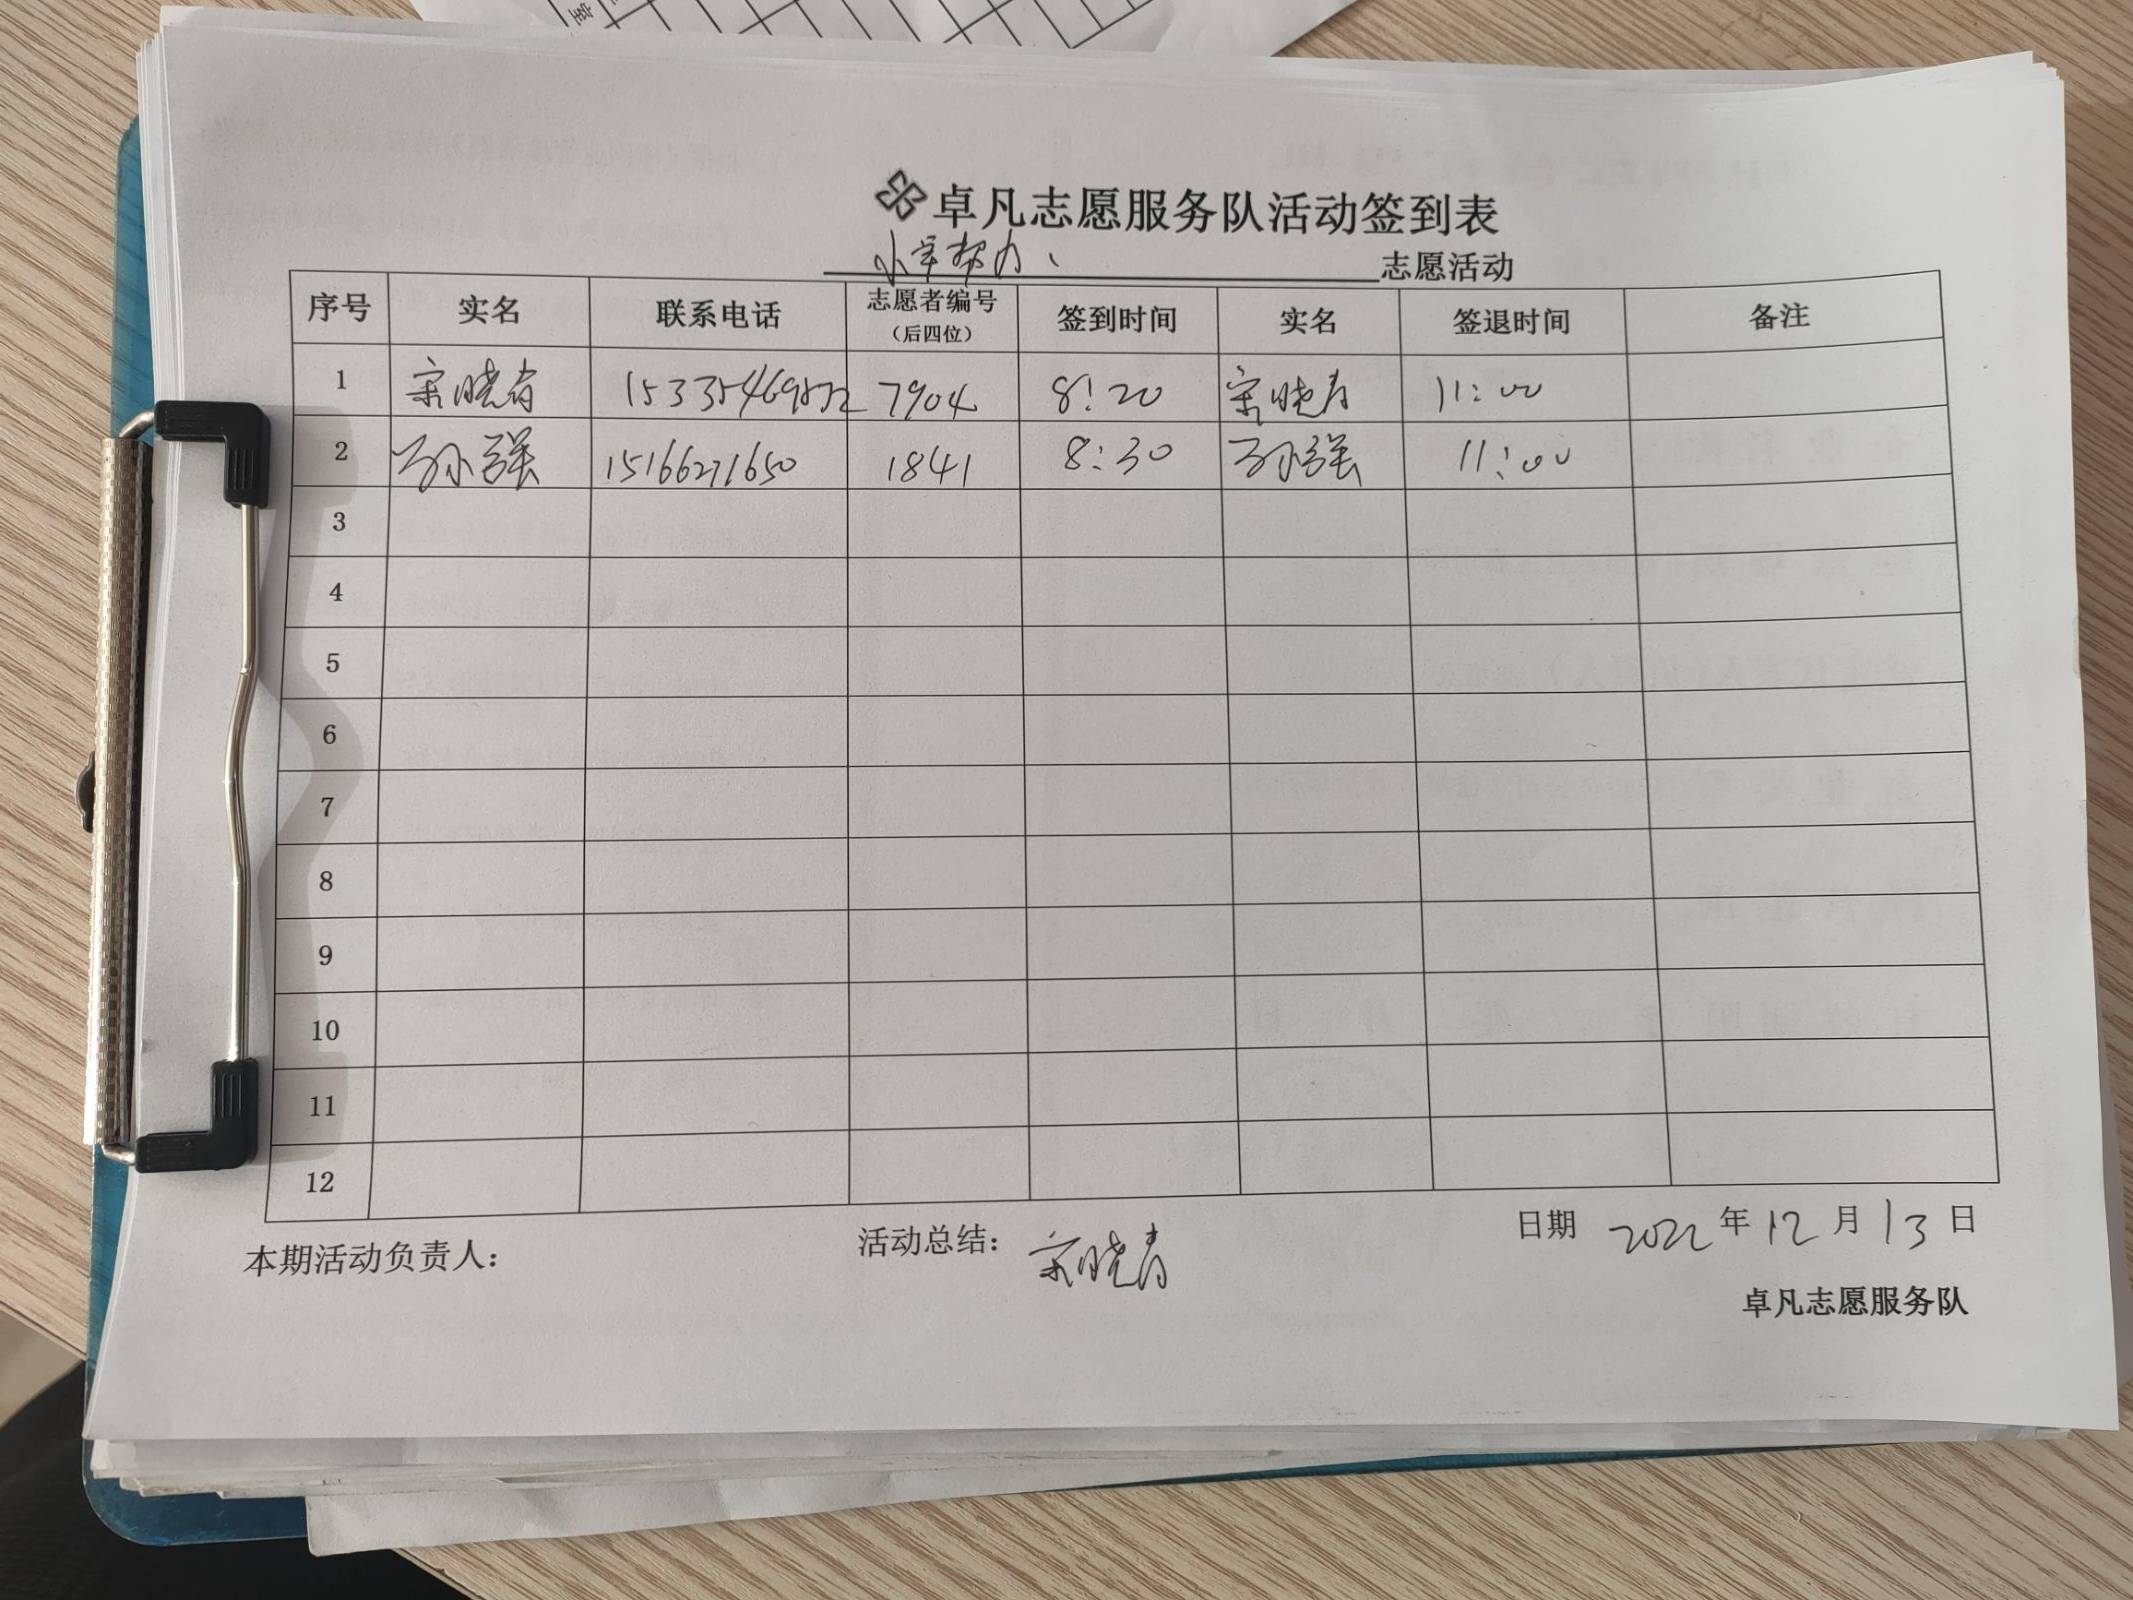 卓凡志愿服务队活动签到表
志愿活动
序号 实名 联系电话 志愿者编号（后四位） 签到时间 实名 签退时间 备注
1 宋晓青 7904 8:20 宋晓青 11:00
2 孙强 15166271650 1841 8:30 孙强 11:00
3
4
5
6
7
8
9
10
11
12
本期活动负责人： 活动总结：宋晓青 日期 2022年12月13日
卓凡志愿服务队